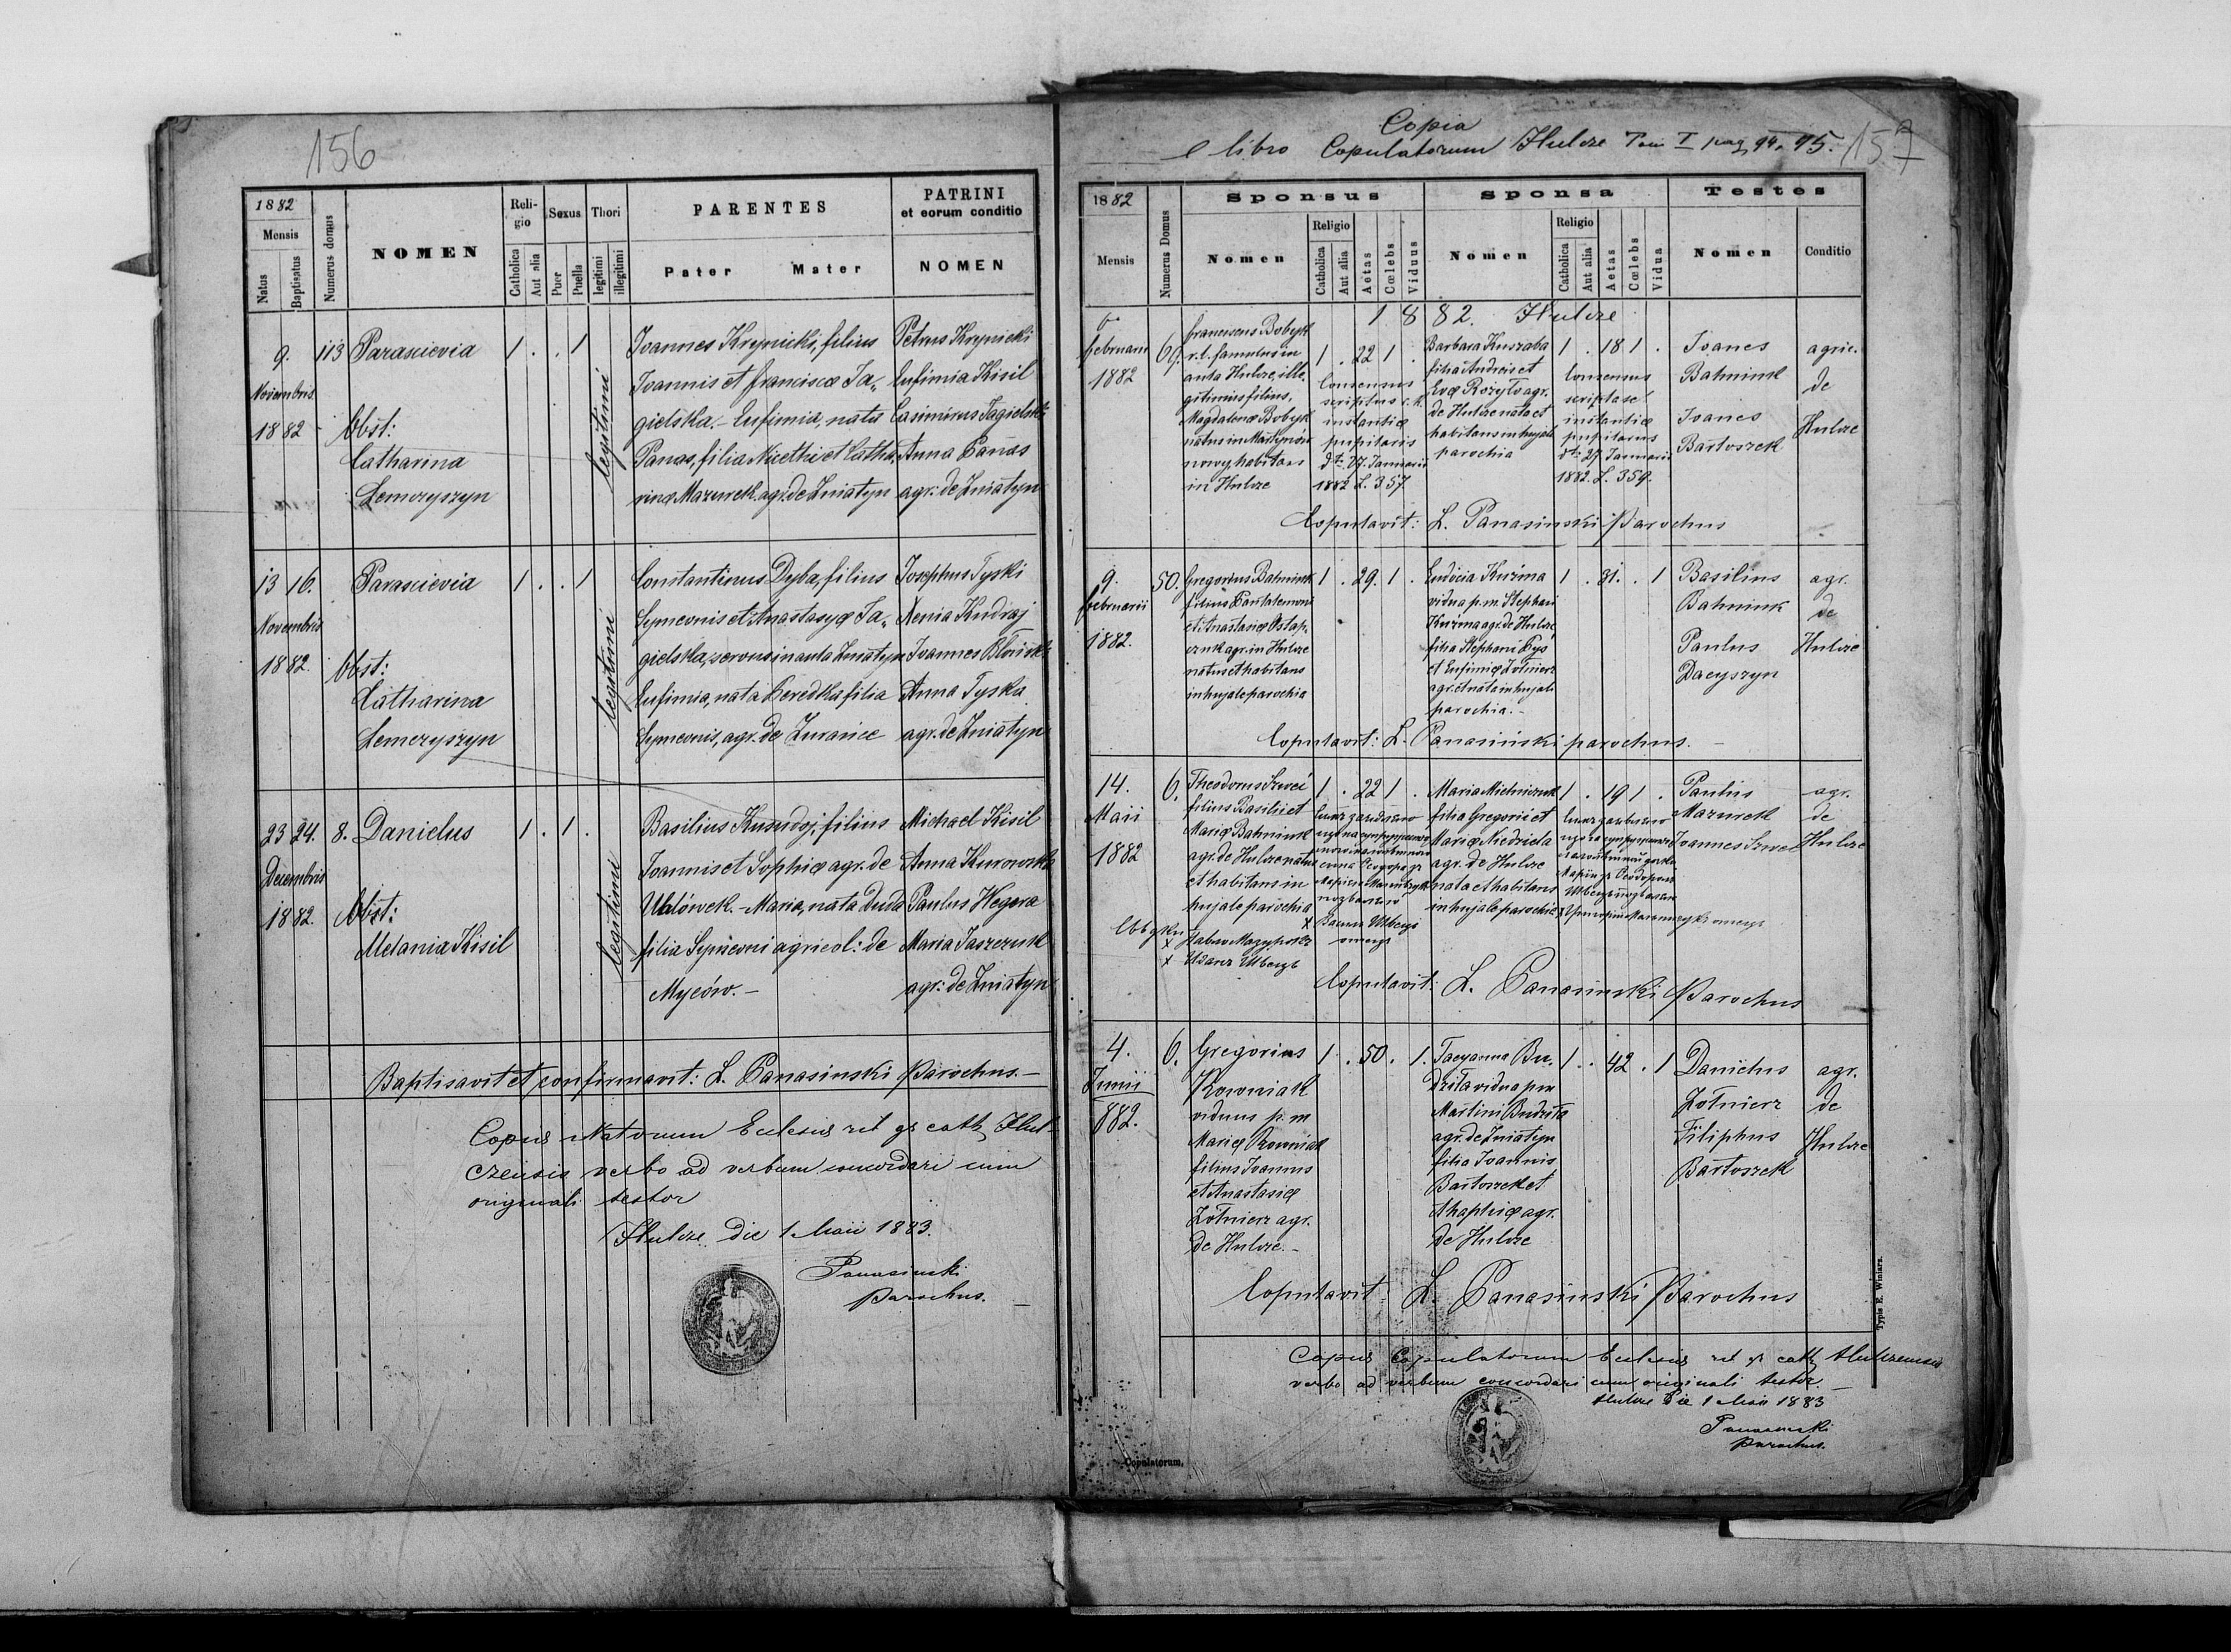 156
1882
Mensis
Natus
Baptisatus
Numerus domus
NOMEN
Religio
Catholica
Aut alia
Sexus
Puer
Puella
Thori
legitimi
illegitimi
PARENTES
Pater Mater
PATRINI
et eorum conditio
NOMEN
9. 113 Parascievia 1 . . 1
Novembris
1882
Obst:
Catharina
Lemczyszyn
legitimi
Joannes Krynicki, filius
Joannis et Franciscæ Ja„
gielska. Eufimia, nata
Panas, filia Nicethi et Catha„
rinæ Mazurek agr. de Zniatyn
Petrus Krynicki
Eufimia Kisil
Casimirus Jagielski
Anna Panas
agr: de Zniatyn
13 16. Parascievia 1 . . 1
Novembris
1882.
Obst:
Catharina
Lemczyszyn
legitimi
Constantinus Dyba, filius
Symeonis et Anastasyæ Ja„
gielska, servus in aula Zniatyn
Eufimia, nata Peredka filia
Symeonis, agr. de Żuranice
Josephus Tyski
Xenia Kudraj
Joannes
Anna Tyska
agr. de Zniatyn
23 24. 8. Danielus 1 . 1 .
Decembris
1882.
Obst:
Melania Kisil
legitimi
Basilius filius
Joannis et Sophiæ agr. de
Uhlówek. - Maria, nata Duda
filia Symeoni agricol: de
Myców. -
Michael Kisil
Anna Kurowska
Paulus Hegera
Maria Jaszczuk
agr: de Zniatyn
Baptisavit et confirmavit: L. Panasinski Parochus. -
Copia Natorum Eclesiæ rit gr cath Hul-
czensis verbo ad verbum concordari cum
originali testor
Hulcze die 1 Maii 1883.
Panasinski
Parochus.
Copia
e libro Copulatorum Hulcze Tom I pag 94. 95.
157
1882
Mensis
Numerus Domus
Sponsus
Nomen
Religio
Catholica
Aut alia
Aetas
Cœlebs
Viduus
Sponsa
Nomen
Religio
Catholica
Aut alia
Aetas
Cœlebs
Vidua
Testes
Nomen
Conditio
1882. Hulcze
6
februarii 69.
1882
Franciscus Bobyk
r. l. famulus in
aula Hulcze, ille„
gitimus filius,
Magdalenæ Bobyk
natus in Martynów
nowy habitans
in Hulcze
1 . 22 1 .
Consensus
scriptus c. k.
instantiæ
pupilaris
dto 27. Januarii
1882 L. 357.
Barbara Kuszaba
filia Andreis et
Evæ agr.
de Hulcze nata et
habitans in hujale
parochia
1 . 18 1 .
Consensus
scriptus
instantiæ
pupilarus
dto 27. Januarii
1882. L. 359.
Joanes
Bahniuk
Joanes
Bartoszek
agric.
de
Hulcze
Copulavit: L. Panasinski Parochus
9. 50.
februarii
1882.
Gregorius Bahniuk
filius Pantalemoni
et Anastasiæ Ostap„
czuk agr. in Hulcze
natus et habitans
in hujale parochia
1 . 29. 1 .
Eudocia Kuźma
vidua p. m. Stephani
Kuźma agr. de Hulcze,
filia Stephani Byś
et Eufimiæ Żołnierz
agr. et nata in hujale
parochia. -
1 . 31. . 1
Basilius
Bahniuk
Paulus
Dacyszyn
agr.
de
Hulcze
Copulavit: L. Panasinski parochus. -
14. 6.
Maii
1882
Theodorus Szweć
filius Basilii et
Mariæ Bahniuk
agr. de Hulcze natus
et habitans in
hujale parochia
1 . 22 1 .
Maria Michniczuk
filia Gregorii et
Mariæ Niedziela
agr. de Hulcze
nata et habitans
in hujale parochia
1 . 19 1 .
Paulus
Mazurek
Joannes Szweć
agr.
de
Hulcze
Copulavit: L. Panasinski Parochus
4. 6.
Junii
882.
Gregorius
Rowniak
viduus p. m
Mariæ Rowniak
filius Joannis
et Anastasiæ
Żołnierz agr.
de Hulcze. -
1 . 50 . 1.
Tacyanna Bu„
dziła vidua p m
Martini Budziła
agr. de Zniatyn
filia Joannis
Bartoszek et
Ahaphiæ agr.
de Hulcze
1 . . 42 . 1
Danielus
Żołnierz
Filiphus
Bartoszek
agr.
de
Hulcze
Copulavit: L. Panasinski Parochus
Copia Copulatorum Eclesiæ rit gr cath Hulczensis
verbo ad verbum concordari cum originali testor. -
Hulcze die 1 Maii 1883
Panasinski
Parochus.
Copulatorum.
Typis E. Winiarz.